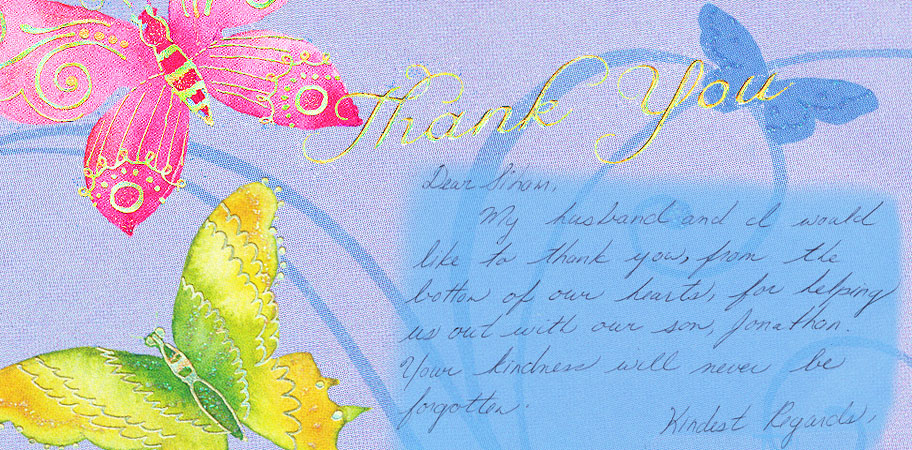 Thank You
Dear Siham,
My husband and I would
like to thank you, from the
bottom of our hearts, for helping
us out with our son, Jonathon.
Your kindness will never be
forgotten.
Kindest Regards,